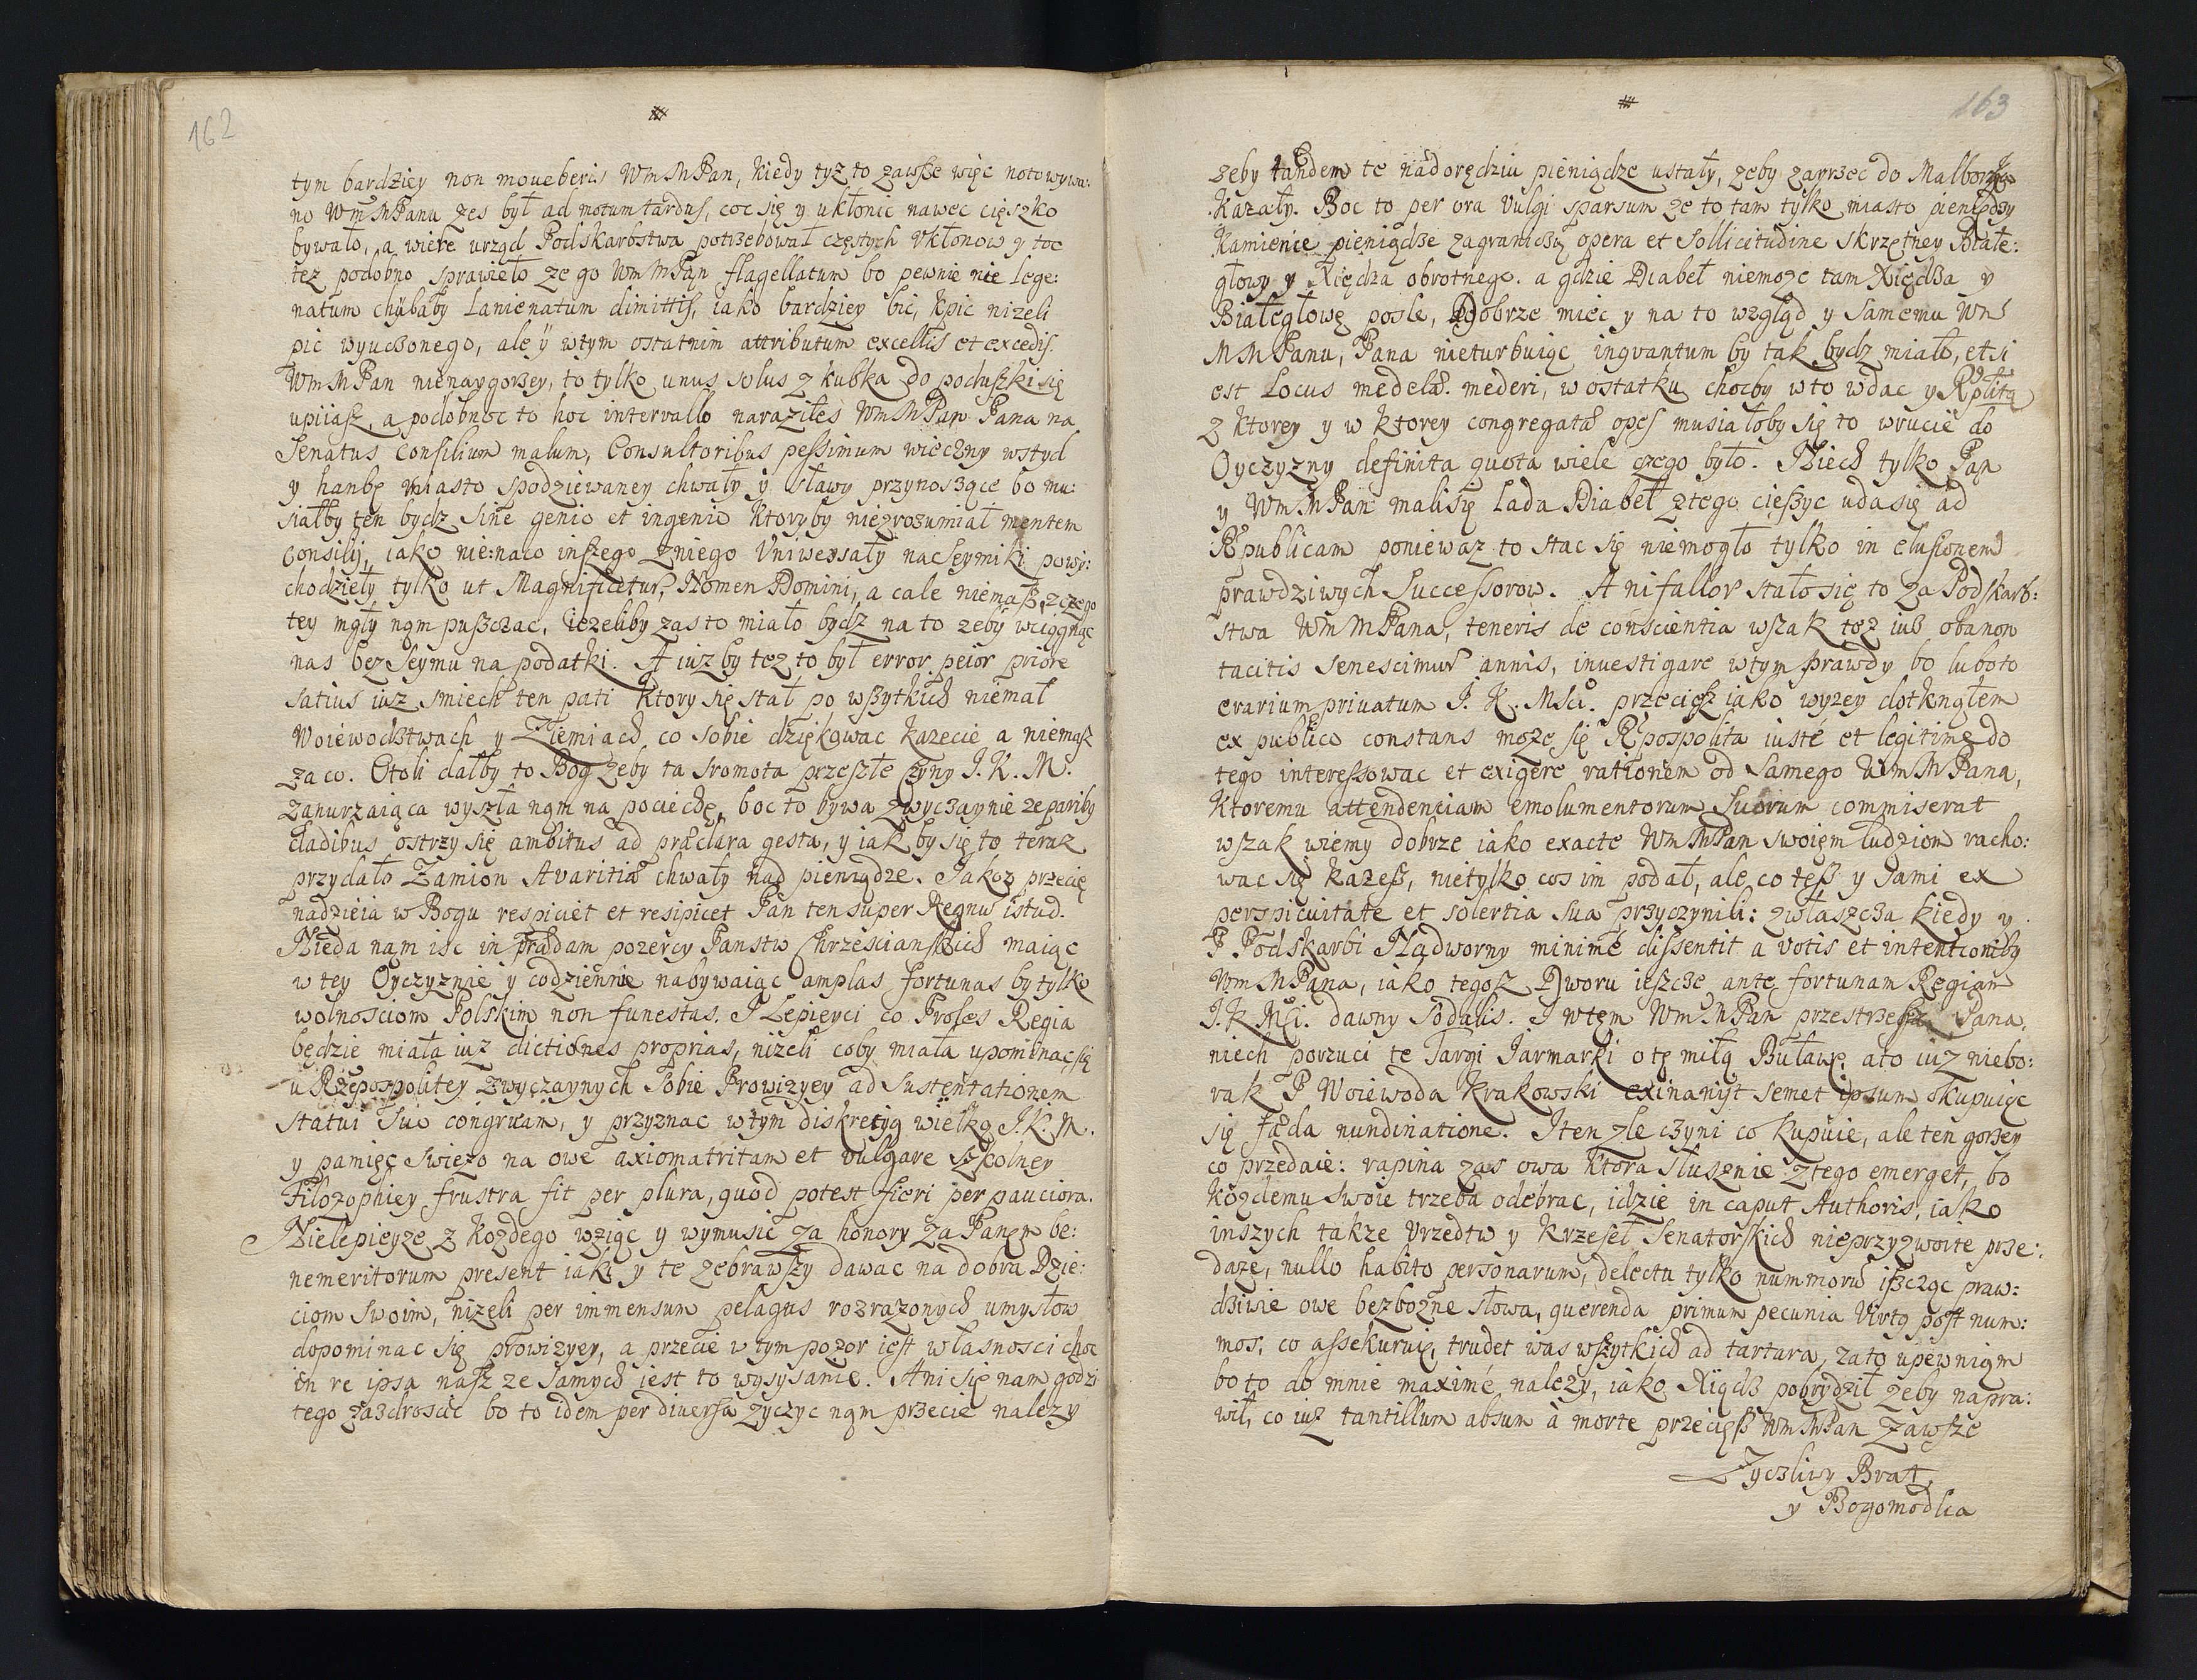 162
tym bardziey non moueberis WmMPan, kiedy tyz to zawsze więc notowywa:
no WmMPanu zes był ad motum tardus, coc się y ukłonic nawec cięszko
bywało, a wiele urząd Podskarbstwa potrzebował częstych Ukłonow y toc
tez podobno sprawieło ze go WmMPąn flagellatum bo pewnie nie lege:
natum chÿbaby Lanienatum dimittis, iako bardziey bic, kpic nizeli
pic wyuczonego, ale ÿ wtym ostatnim attributum excellis et excedis.
WmMPan nienaygorzey, to tylko unus solus z kubka do poduszki się
upiiasz, a podobnoc to hoc intervallo naraziłes WmMPan Pana na
Senatus Consilium malum, Consultoribus pessimum wieczny wstyd
y hanbę miasto spodziewaney chwały y sławy przynoszące bo mu:
siałby ten bydz sine genio et ingenio ktoryby niezrozumiał mentem
consilij, iako nie:naco inszego zniego Uniwersały na Seymiki powy:
chodzieły tylko ut Magnificetur, Nomen Domini, a cale niemasz zczego
tey mgły nąm puszczac, iezeliby zas to miało bydz na to zeby wciągnąc
nas bez Seymu na podatki. A iuz by tez to był error peior priore
satius iusz smiech ten pati ktory się stał po wszytkich niemal
Woiewodztwach y Ziemiach co sobie dziękowac kazecie a niemasz
za co. Otoli dałby to Bog zeby ta sromota przeszłe czyny J. K. M.
zanurzaiąca wyszła nąm na pociechę, boc to bywa zwyczaynie ze pariby
cladibus ostrzy się ambitus ad præclara gesta, y iak by się to teraz
przydało Zamion Avaritiæ chwały nad pieniądze. Jakoz przecię
nadzieia w Bogu respiciet et resipicet Pan ten super Regnu istud.
Nieda nam isc in prædam pozercy Panstw Chrzescianskich maiąc
w tey Oyczyznie y codziennie nabywaiąc amplas fortunas by tylko
wolnosciom Polskim non funestas. I Lepieyci co Proles Regia
będzie miała iuz dictiones proprias, nizeli coby miała upominac się
u Rzepospolitey zwyczaynych Sobie Prowizyey ad Sustentationem
statui suo congruam, y przyznac wtym diskretią wielką J. K. M.
y pamięc swiezo na owe axiomatritam et vulgare szkolney
Filozophiey frustra fit per plura, quod potest fieri per pauciora.
Nielepieyze z kozdego wziąc y wymusic za honory za Panem be:
nemeritorum present iak y te zebrawszy dawac na dobra Dzie:
ciom swoim, nizeli per immensum pelagus rozrazonych umysłow
dopominac się prowizyey, a przecie w tym pozor iest własnosci choc
in re ipsa nasz ze samych iest to wysysanie. Ani się nam godzi
tego zazdroscic bo to idem per diuersa zyczyc nąm przecie nalezy
163
zeby tandem te nadorędziu pieniądze ustały, zeby zayrzec do Malborga
kazały. Boc to per ora Vulgi sparsum ze to tam tylko miasto pieniędzy
Kamienie pieniądze zagraniczą opera et sollicitudine skrzętney Białe:
głowy y Xiędza obrotnego. a gdzie Diabeł niemoze tam Xiędza y
Białegłowę posle, Dobrze miec y na to wzgląd y samemu Wm
MMPanu, Pana nieturbuiąc inqvantum by tak bydz miało, etsi
est Locus medelæ. mederi, w ostatku chocby wto wdac y Rzptą
z ktorey y w ktorey congregatæ opes musiałoby się to wrucic do
Oyczyzny definita quota wiele czego było. Niech tylko Pąn
y WmMPan malisię Lada Diabeł ztego cięszyc uda się ad
Rpublicam poniewaz to stac się niemogło tylko in elusionem
prawdziwych Successorow. A ni fallor stało się to za Podskarb:
stwa WmMPana, teneris de conscientia wszak tez iuz obanon
tacitis senescimus annis, investigare wtym prawdy bo luboto
erarium priuatum J. K. Msci. przeciesz iako wyzey dotknąłem
ex publico constans moze się Rpospolita iusté et legitimę do
tego interessowac et exigere rationem od samego WmMPana,
ktoremu attendenciam emolumentorum suorum commiserat
wszak wiemy dobrze iako exacte WmMPan swoięm ludziom racho:
wac się kazesz, nietylko cos im podał, ale co tęsz y sami ex
perspicuitate et solertia sua przyczynili: zwłaszcza kiedy y
P Podskarbi Nądworny minimé dissentit a votis et intentioniby
WmMPana, iako tegosz Dworu ieszcze ante fortunam Regiam
J. K Mci. dawny Sodalis. I wtęm WmMPan przestrzesz Pana,
niech porzuci te Targi Jarmarki o tę miłą Buławę. ato iuz niebo:
rak P Woiewoda Krakowski exinanijt semet ipsum skupuiąc
się fæda nundinatione. I ten zle czyni co kupuie, ale ten gorzey
co przedaie: rapina zas owa ktora słusznie ztego emerget, bo
kozdemu swoie trzeba odebrac, idzie in caput Authoris, iako
inszych takze Vrzedtw y Krzeseł Senatorskich nieprzyzwoite prze:
daze, nullo habito personarum, delectu tylko nummoru iszcząc praw:
dziwie owe bezbozne słowa, querenda primum pecunia Virtq post num:
mos, co assekuruię, trudet was wszytkich ad tartara, zato upewniąm
bo to do mnie maximé nalezy, iako Xiądz pobrydził zeby napra:
wił, co iuz tantillum absum à morte przecięsz WmMPan Zawsze
Zyczliwy Brat
y Bogomodlca